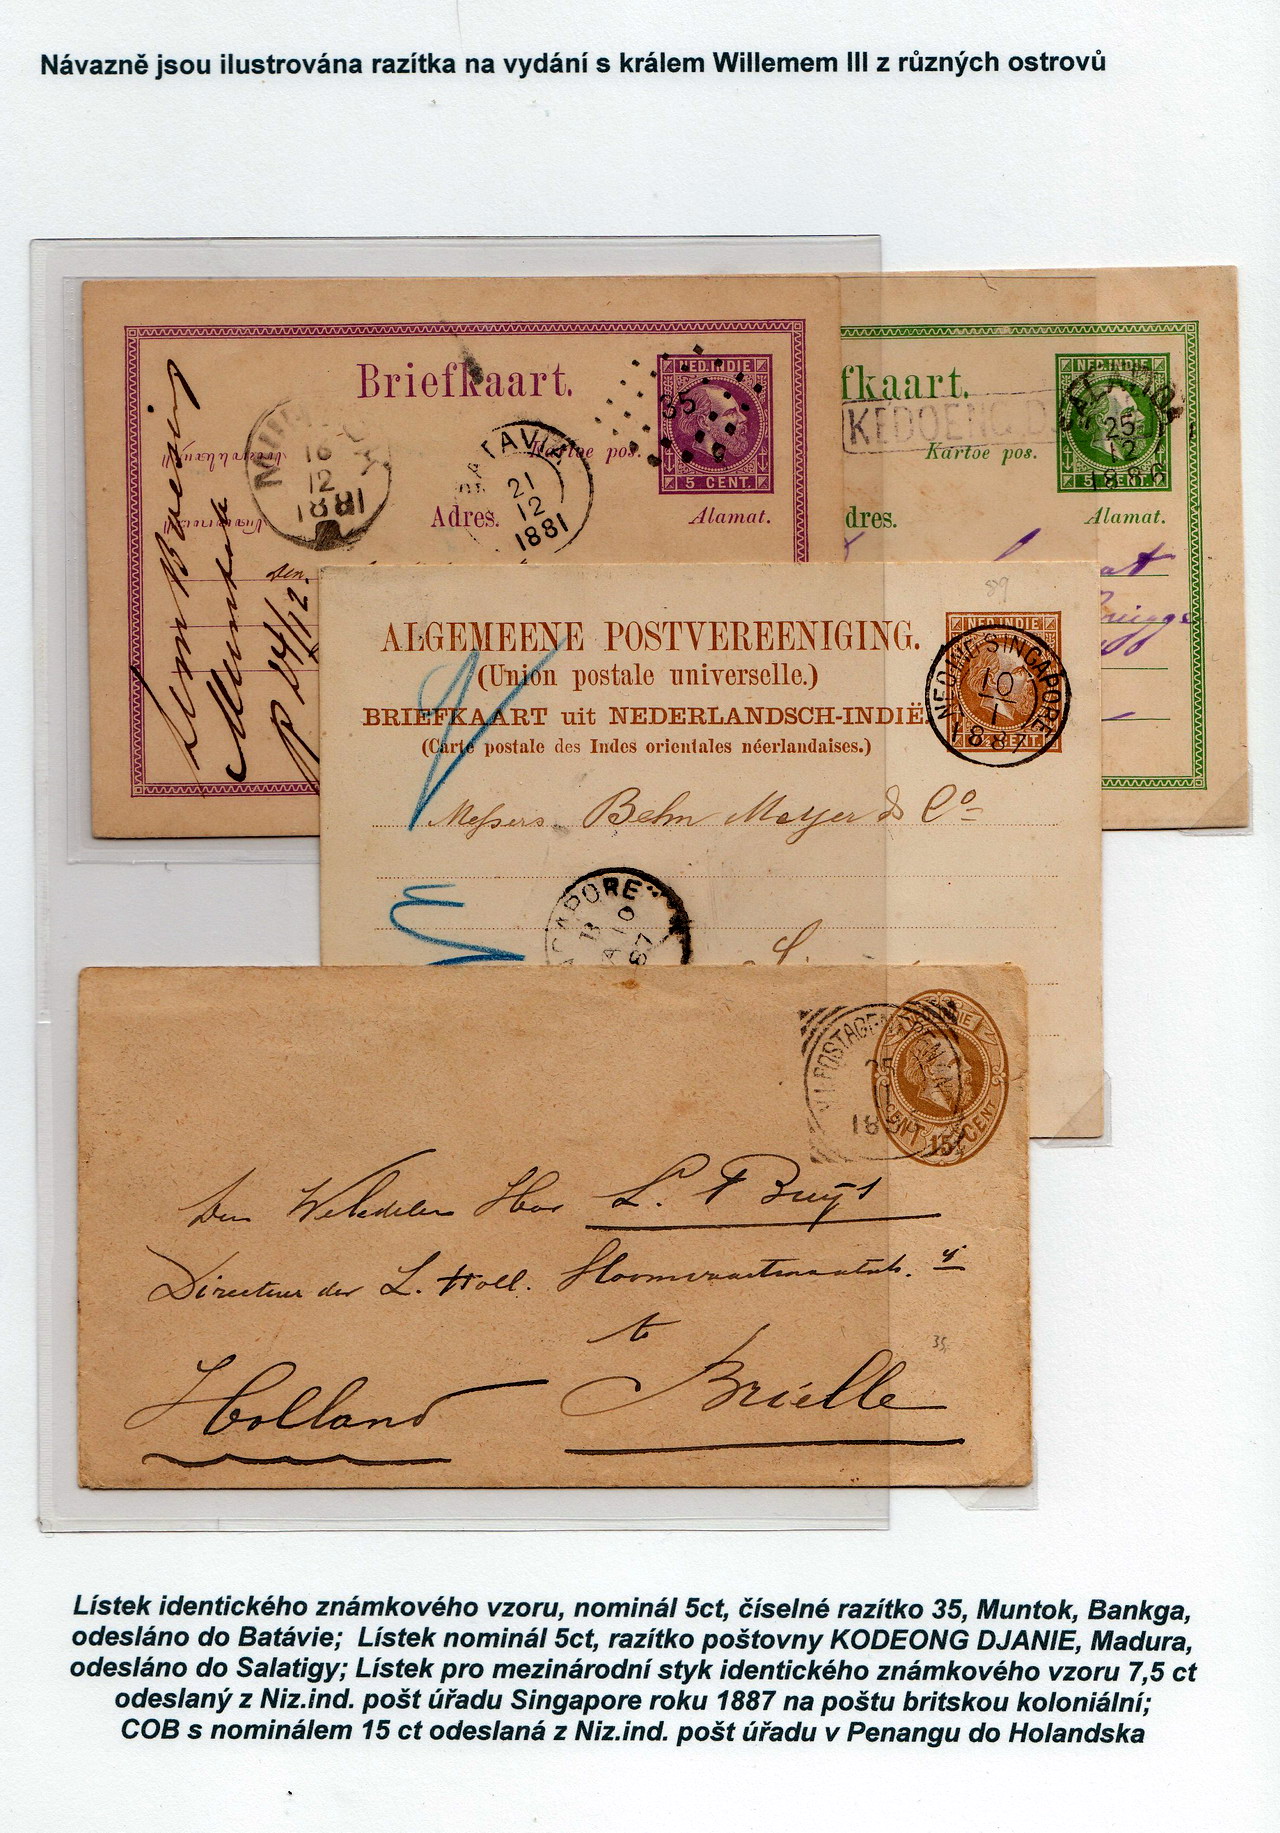 Návazně jsou ilustrována razítka na vydání s králem Willemem III z různých ostrovů
Briefkaart.
NED.INDIE
35
Kartoe pos.
5 CENT.
Adres.
Alamat.
16
12
1881
BATAVIA
21
12
1881
fkaart.
NED.INDIE
KEDOENG D
Kartoe pos.
25
12
1886
5 CENT.
dres.
Alamat.
ALGEMEENE POSTVEREENIGING.
(Union postale universelle.)
BRIEFKAART uit NEDERLANDSCH-INDIË.
(Carte postale des Indes orientales néerlandaises.)
NED.INDIE
SINGAPORE
10
1
1887
CENT.
Messers. Behn Meyer & Co
GAPORE
NED. INDIE
POSTAGENT PENANG
25
15 CENT
L. Buijs
Directeur der L. Holl. Stoomvaartmaatsch. ij
te
Holland Brielle
35
Lístek identického známkového vzoru, nominál 5ct, číselné razítko 35, Muntok, Bankga,
odesláno do Batávie; Lístek nominál 5ct, razítko poštovny KODEONG DJANIE, Madura,
odesláno do Salatigy; Lístek pro mezinárodní styk identického známkového vzoru 7,5 ct
odeslaný z Niz.ind. pošt úřadu Singapore roku 1887 na poštu britskou koloniální;
COB s nominálem 15 ct odeslaná z Niz.ind. pošt úřadu v Penangu do Holandska